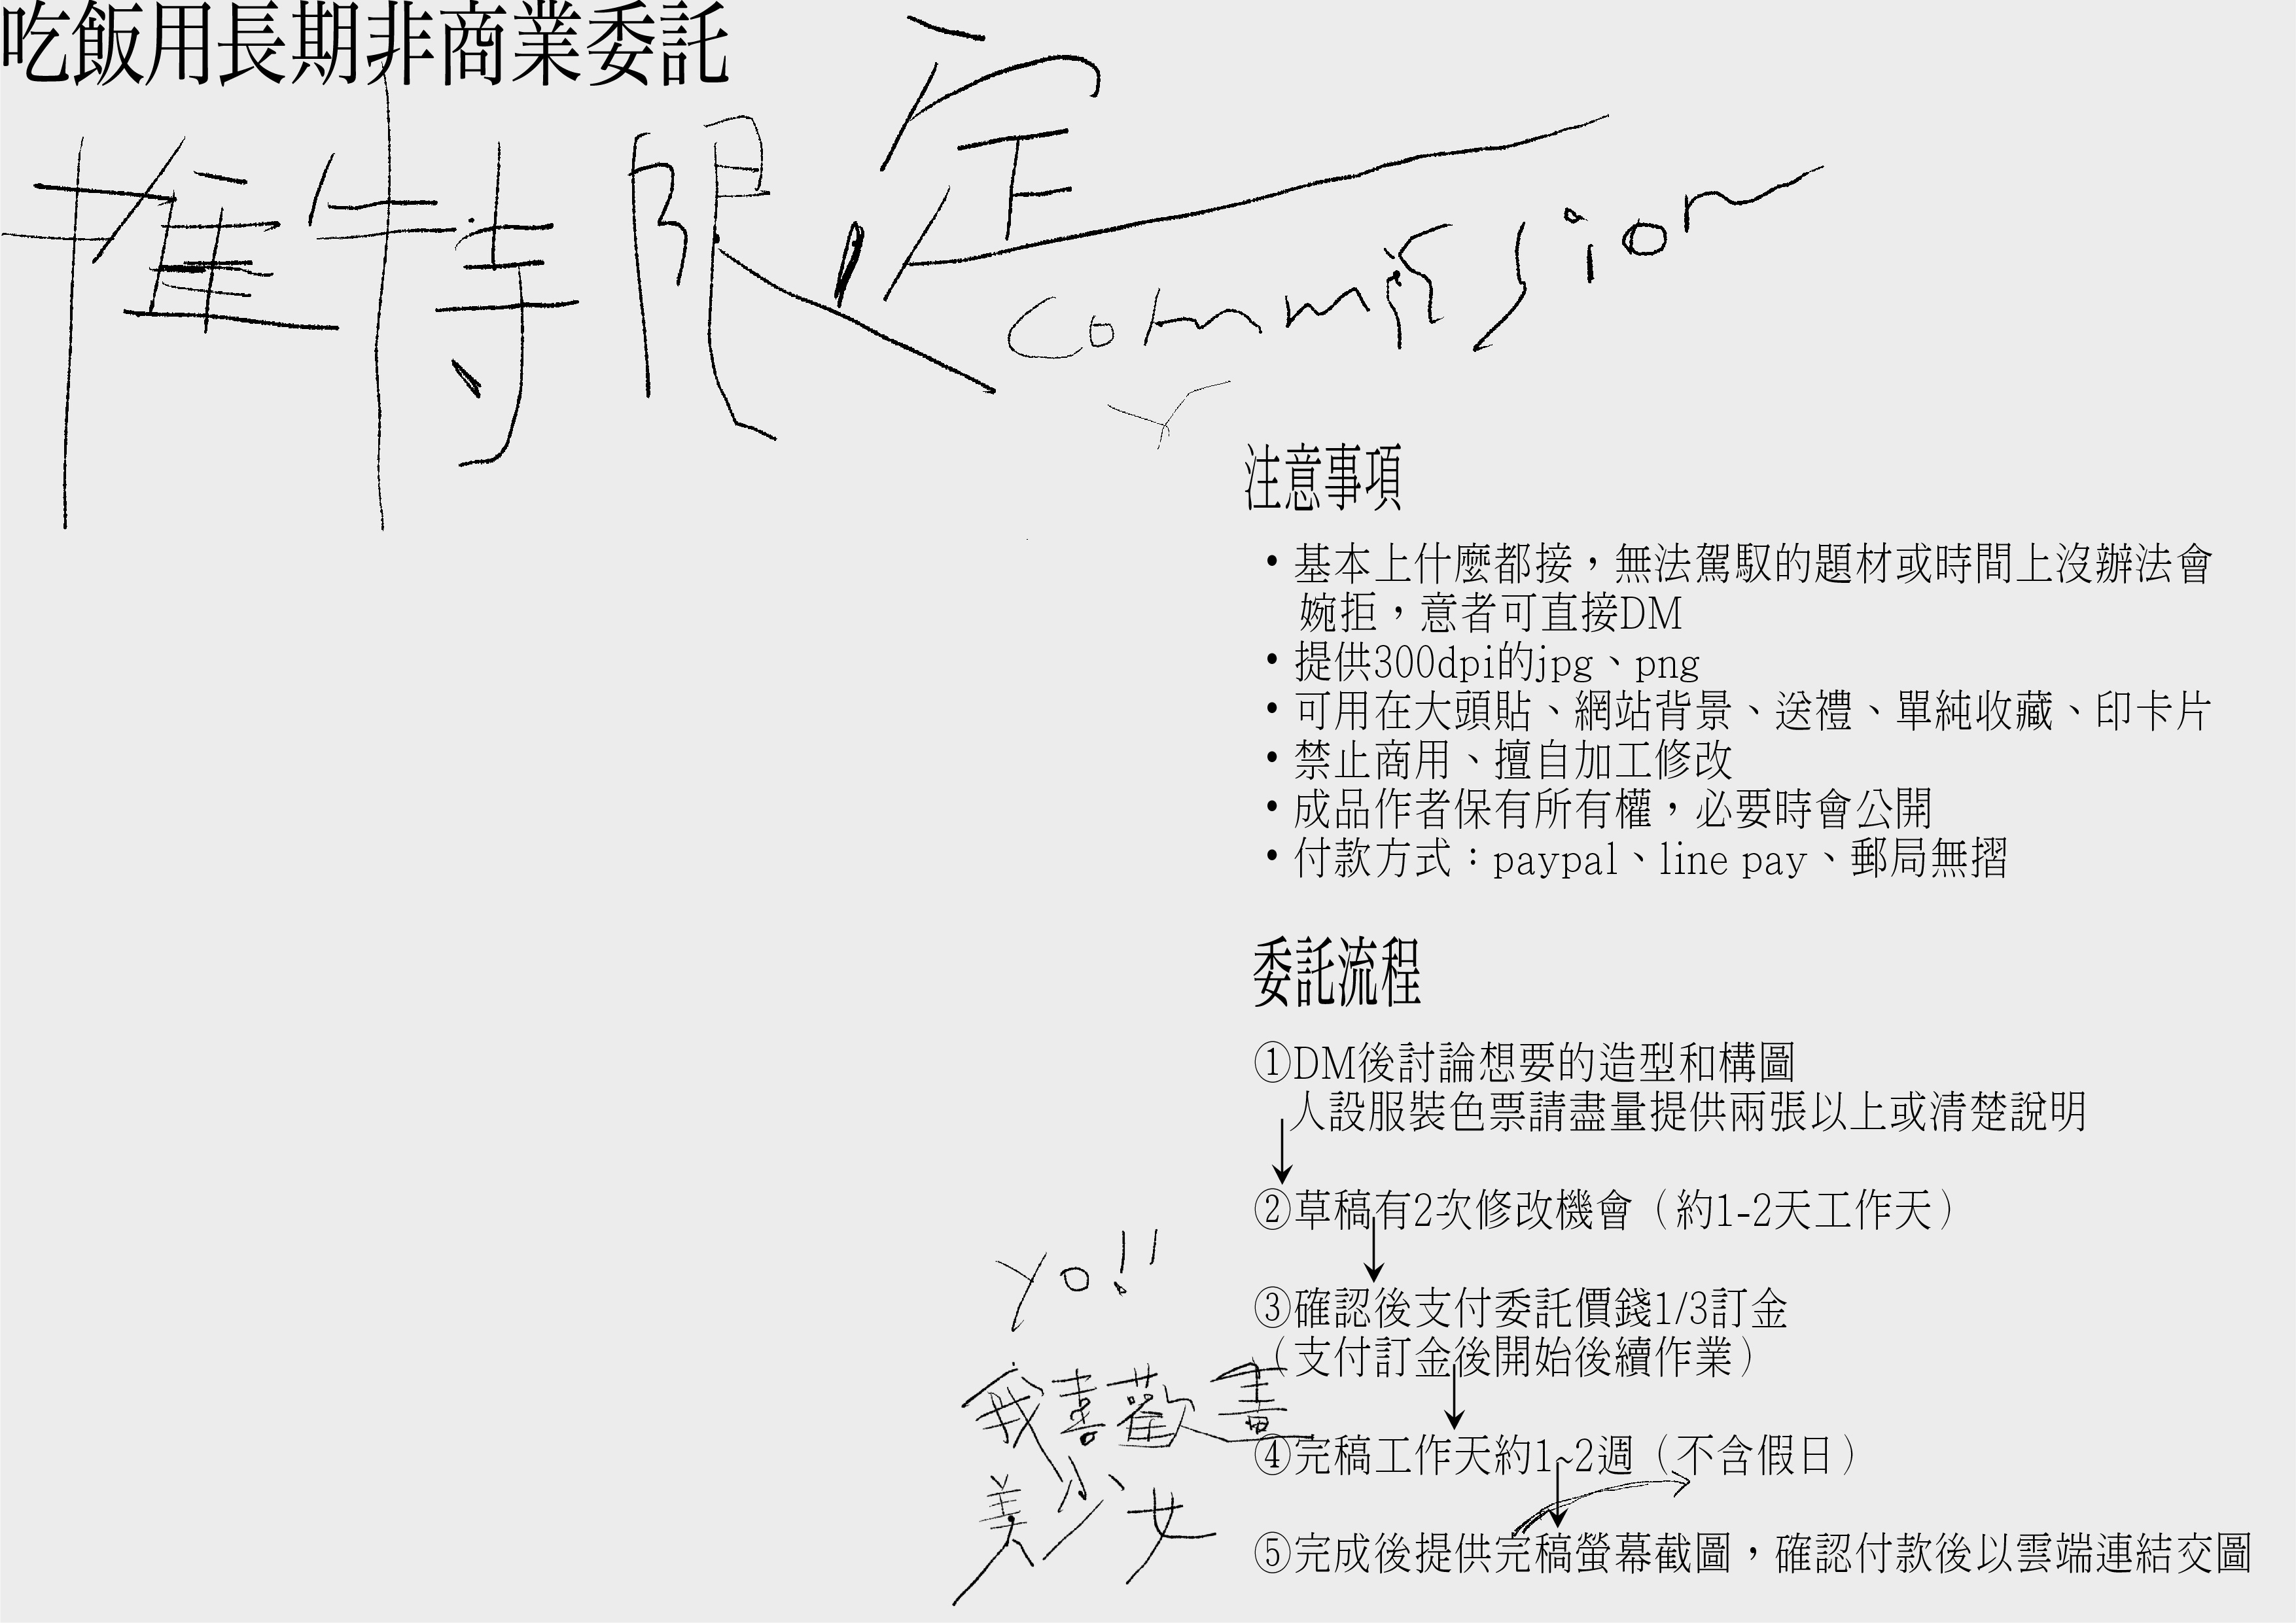 吃飯用長期非商業委託
推特限定
commission
注意事項
・基本上什麼都接，無法駕馭的題材或時間上沒辦法會
婉拒，意者可直接DM
・提供300dpi的jpg、png
・可用在大頭貼、網站背景、送禮、單純收藏、印卡片
・禁止商用、擅自加工修改
・成品作者保有所有權，必要時會公開
・付款方式：paypal、line pay、郵局無摺
委託流程
①DM後討論想要的造型和構圖
人設服裝色票請盡量提供兩張以上或清楚說明
②草稿有2次修改機會（約1-2天工作天）
③確認後支付委託價錢1/3訂金
（支付訂金後開始後續作業）
④完稿工作天約1~2週（不含假日）
⑤完成後提供完稿螢幕截圖，確認付款後以雲端連結交圖
yo!!
我喜歡畫
美少女